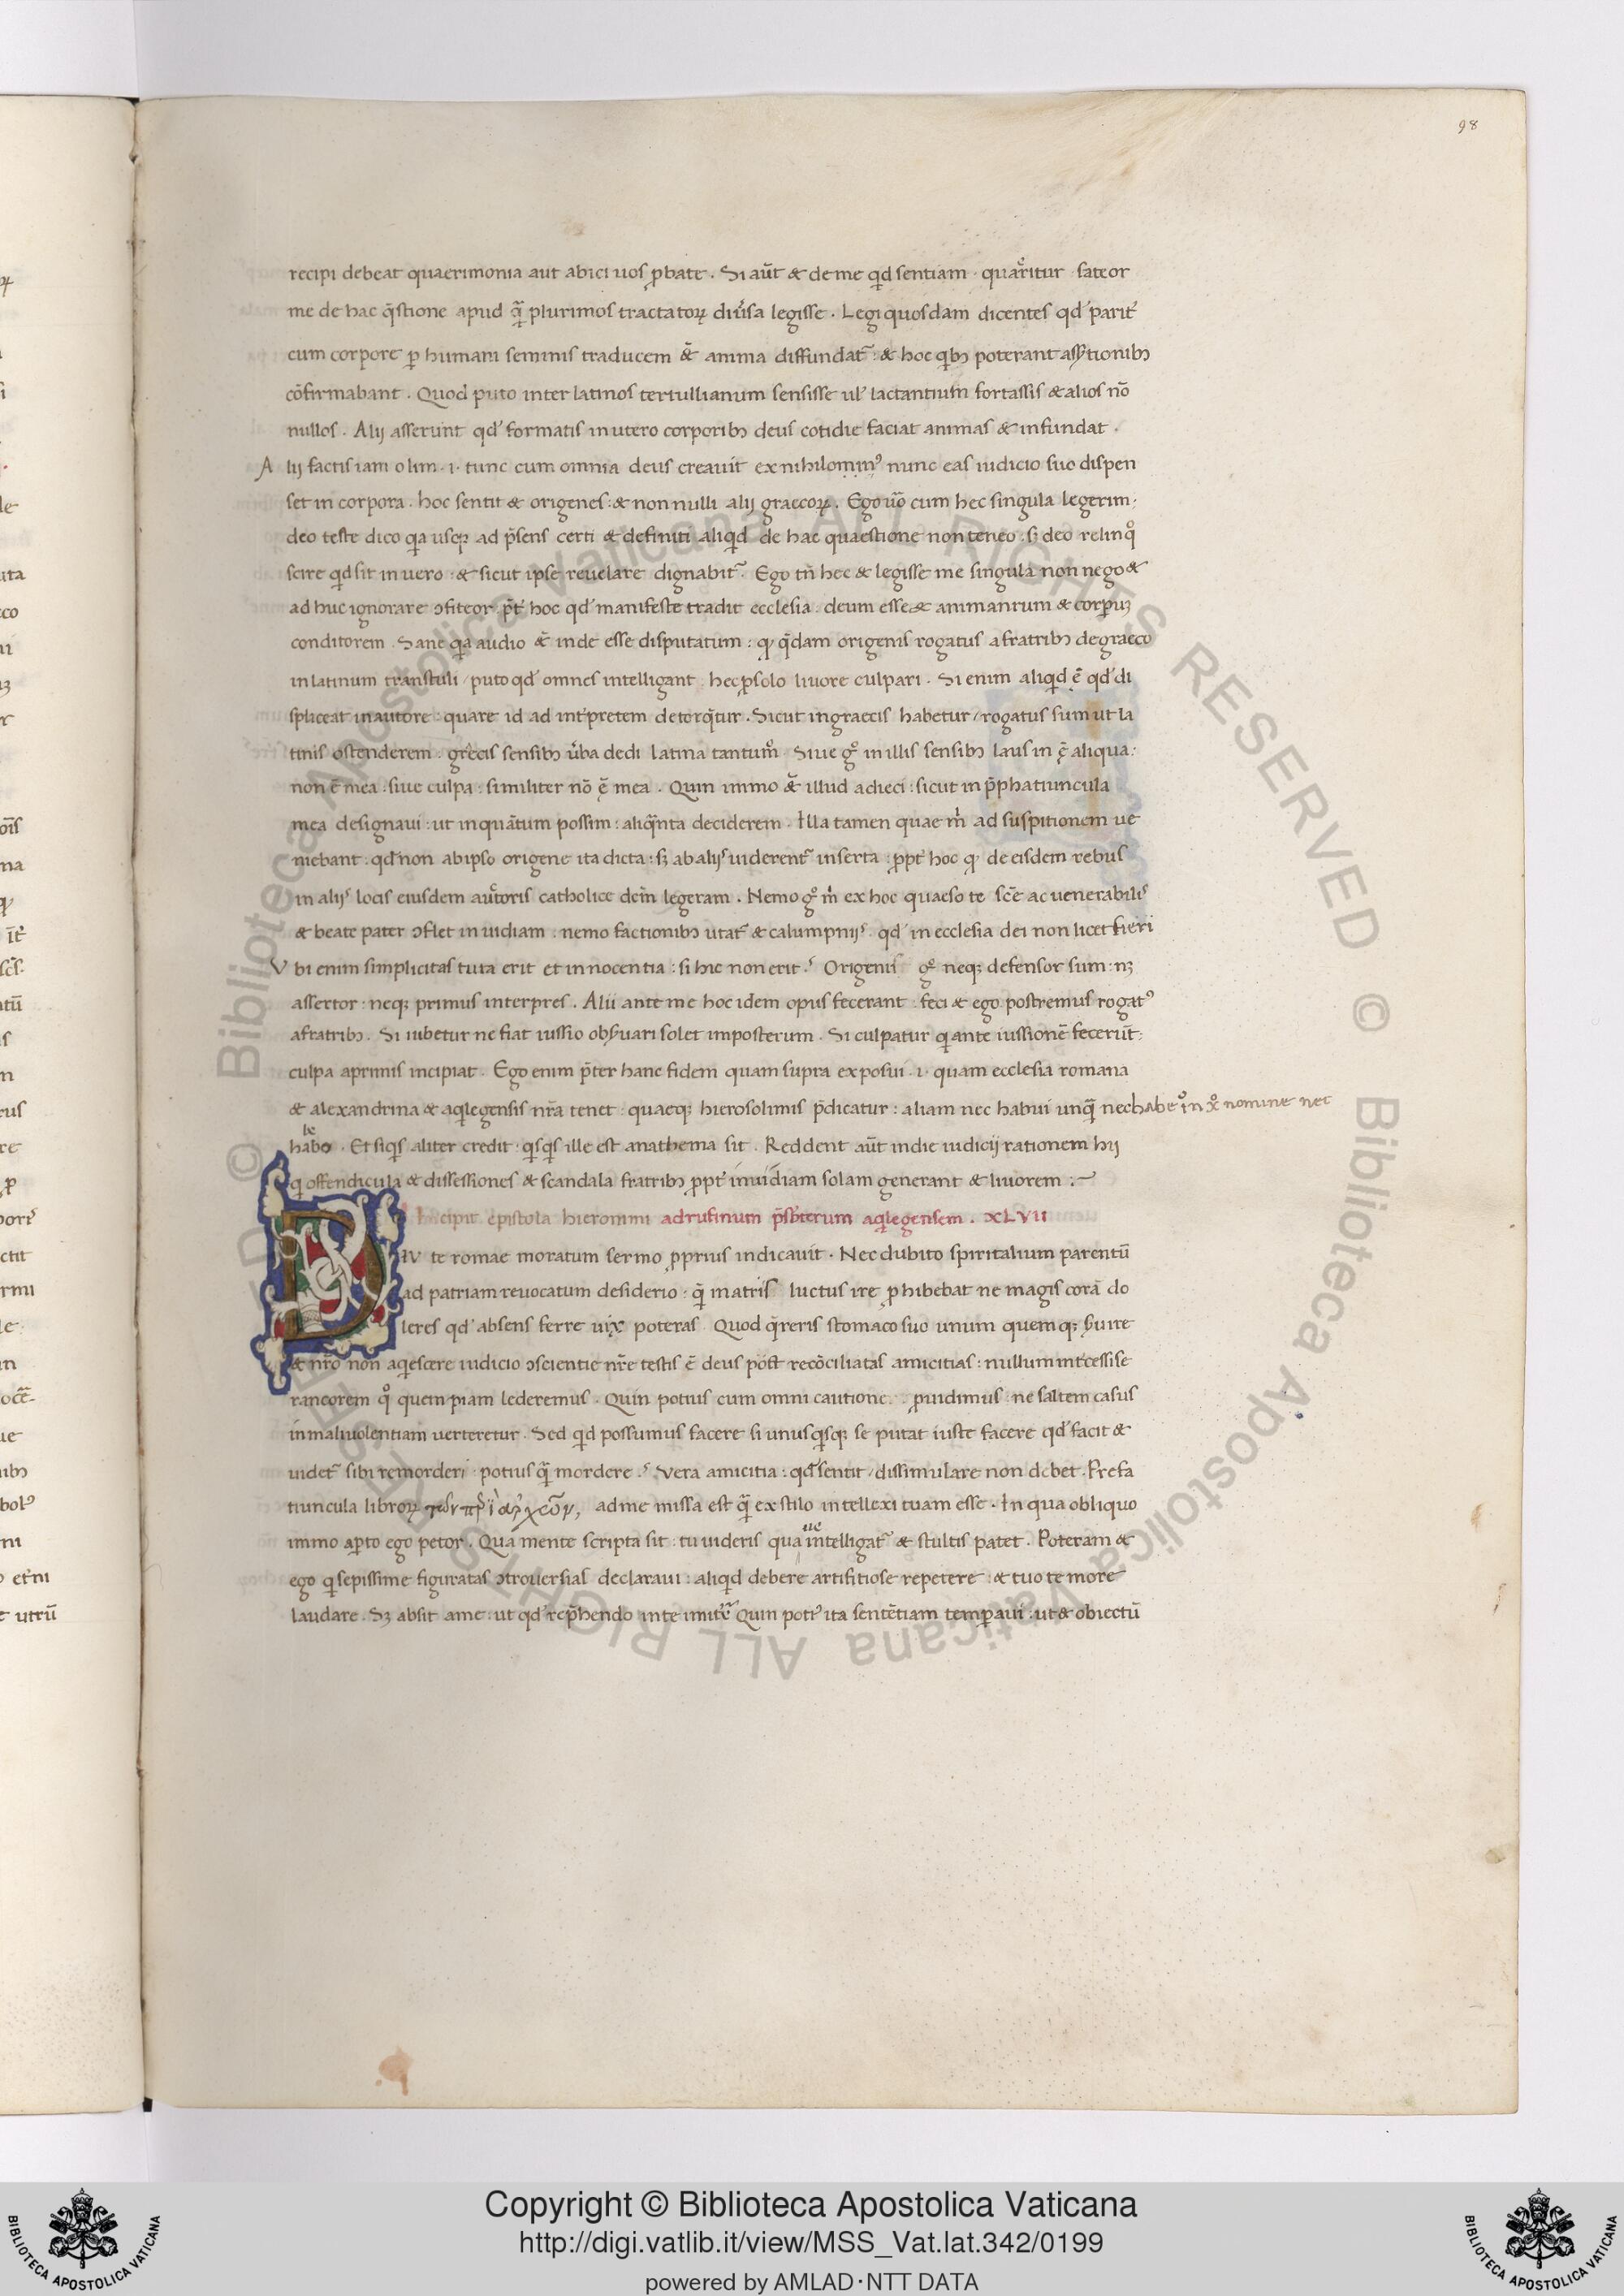 98
recipi debeat quaerimonia aut abici uos ꝓbate. Si aūt & de me qͥd sentiam · quaꝛ̄itur · fateor
me de hac q̄stione apud qͣ̄ plurimos tractatoꝝ diu̓sa legisse. Legi quosdam dicentes qđ parit̓
cum corpore ꝑ humani seminis traducem &̄ anima diffundat᷑ : & hoc qͥbꝫ poterant ass̓tionibꝫ
cōfirmabant. Quod puto inter latinos tertullianum sensisse uł lactantium fortassis & alios nō
nullos. Alij asserunt qđ formatis in utero corporibꝫ deus cotidie faciat animas & infundat.
Alij factis iam olim · i · tunc cum omnia deus creauit ex nihilo nunc eas iudicio suo dispen
set in corpora. hoc sentit & origenes : & non nulli alij graecoꝝ. Ego u̓o cum hec singula legerim :
deo teste dico qͥa usqꝫ ad p̄sens certi & definiti aliqͥd de hac quaestione non teneo : sꝫ deo relinqͦ
scire qͥd sit in uero : & sicut ipse reuelare dignabit᷑. Ego tn̄ hec & legisse me singula non nego &
ad huc ignorare ↄfiteor p̄t̓ hoc qđ manifeste tradit ecclesia : deum esse & animarum & corpoꝝ
conditorem. Sane qͥa audio &̄ inde esse disputatum : qꝫ q̄dam origenis rogatus a fratribꝫ de graeco
in latinum transtuli / puto qđ omnes intelligant : hec ꝓ solo liuore culpari. Si enim aliqͥd ē qđ di
spliceat in autore : quare id ad int̓pretem detorq̄tur. Sicut in graecis habetur / rogatus sum ut la
tinis ostenderem. grecis sensibꝫ u̓ba dedi latina tantum. Siue gͦ in illis sensibꝫ laus inē aliqua :
non ē mea : siue culpa : similiter nō ē mea. Quin immo &̄ illud adieci : sicut in p̄phatiuncula
mea designaui : ut in quātum possim : aliqͣnta deciderem. Illa tamen quae mͥ ad suspitionem ue
niebant : qđ non ab ipso origene ita dicta : sꝫ ab alijs uiderent᷑ inserta : ꝓpt̓ hoc qꝫ de eisdem rebus
in alijs locis eiusdem autoris catholice dem̄ legeram. Nemo gͦ mͥ ex hoc quaeso te scē ac uenerabilis
& beate pater ↄflet inuidiam : nemo factionibꝫ utat᷑ & calumpnijs · qđ in ecclesia dei non licet fieri
Vbi enim simplicitas tuta erit et innocentia : si hic non erit? Origenis gͦ neqꝫ defensor sum : nꝫ
assertor : neqꝫ primus interpres. Alii ante me hoc idem opus fecerant : feci & ego postremus rogatꝰ
a fratribꝫ. Si iubetur ne fiat iussio obs̓uari solet imposterum. Si culpatur qͥ ante iussionē fecerūt :
culpa a primis incipiat. Ego enim p̄ter hanc fidem quam supra exposui · i · quam ecclesia romana
& alexandrina & aqͥlegensis nr̄a tenet : quaeqꝫ hierosolimis p̄dicatur : aliam nec habui unqͣ̄ nec habeo in xͦ nomine nec
be
habo. Et siqͥs aliter credit : qͥsqͥs ille est anathema sit. Reddent aūt in die iudicij rationem hij
qͥ offendicula & dissessiones & scandala fratribꝫ ꝓpt̓ inuidiam solam generant & liuorem :~
Incipit epistola hieronimi ad rufinum p̄sb̓iterum aqͥlegensem. XLVII
DIV te romae moratum sermo ꝓprius indicauit. Nec dubito spiritalium parentū
ad patriam reuocatum desiderio : qͣ̄ matris luctus ire ꝓhibebat ne magis corā do
leres qđ absens ferre uix poteras. Quod q̄reris stomaco suo unum quemqꝫ s̓uire
& nr̄o non aqͥescere iudicio ↄscientie nr̄e testis ē deus post recōciliatas amicitias : nullum int̓cessisse
rancorem qͦ quempiam lederemus. Quin potius cum omni cautione ꝓuidimus : ne saltem casus
in maliuolentiam uerteretur. Sed qͥd possumus facere si unusqͥsqꝫ se putat iuste facere qđ facit &
uidet᷑ sibi remorderi potius qͣ̄ mordere? Vera amicitia : qđ sentit / dissimulare non debet. Prefa
tiuncula libroꝝ των πρὶ ἀρχῶν, ad me missa est qͣ̄ ex stilo intellexi tuam esse. In qua obliquo
immo aꝑto ego petor. Qua mente scripta sit : tu uideris qua intelligat᷑ & stultis patet. Poteram &
ego qͥ sepissime figuratas ↄtrouersias declaraui : aliqͥd debere artifitiose repetere : & tuo te more
laudare. Sꝫ absit a me : ut qđ rep̄hendo in te imiter. Quin potꝰ ita sentētiam temꝑaui : ut & obiectū
Copyright © Biblioteca Apostolica Vaticana
http://digi.vatlib.it/view/MSS_Vat.lat.342/0199
powered by AMLAD·NTT DATA